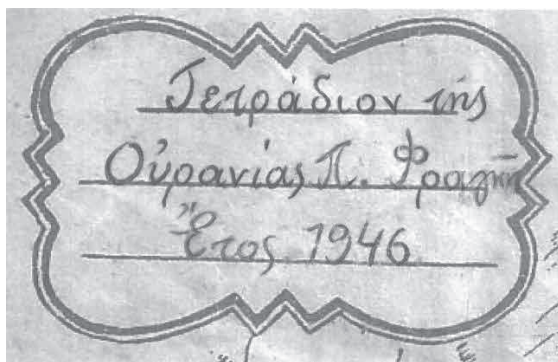 Τετράδιον τῆς
Οὐρανίας Π. Φραγκῆ
Ἔτος 1946